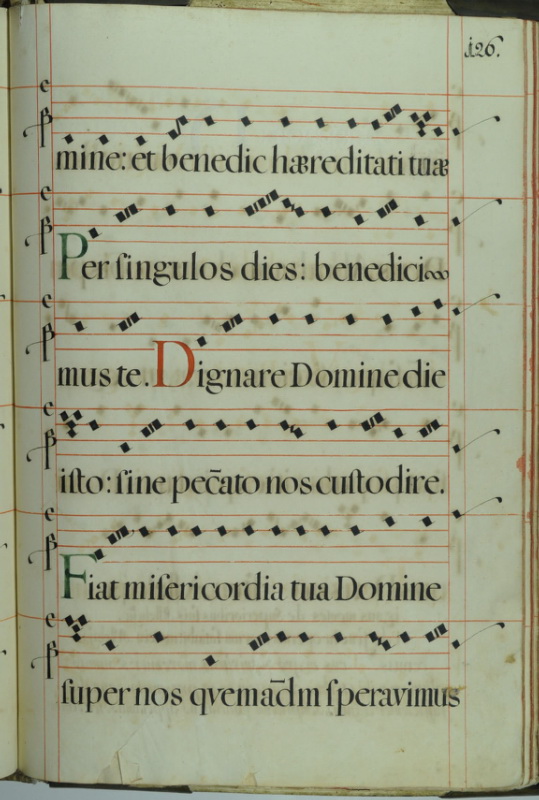 126.
mine: et benedic hæreditati tuæ
Per ſingulos dies: benedici
mus te. Dignare Domine die
iſto: ſine pecc̄ato nos cuſtodire.
Fiat miſericordia tua Domine
ſuper nos qvemād̄m ſperavimus